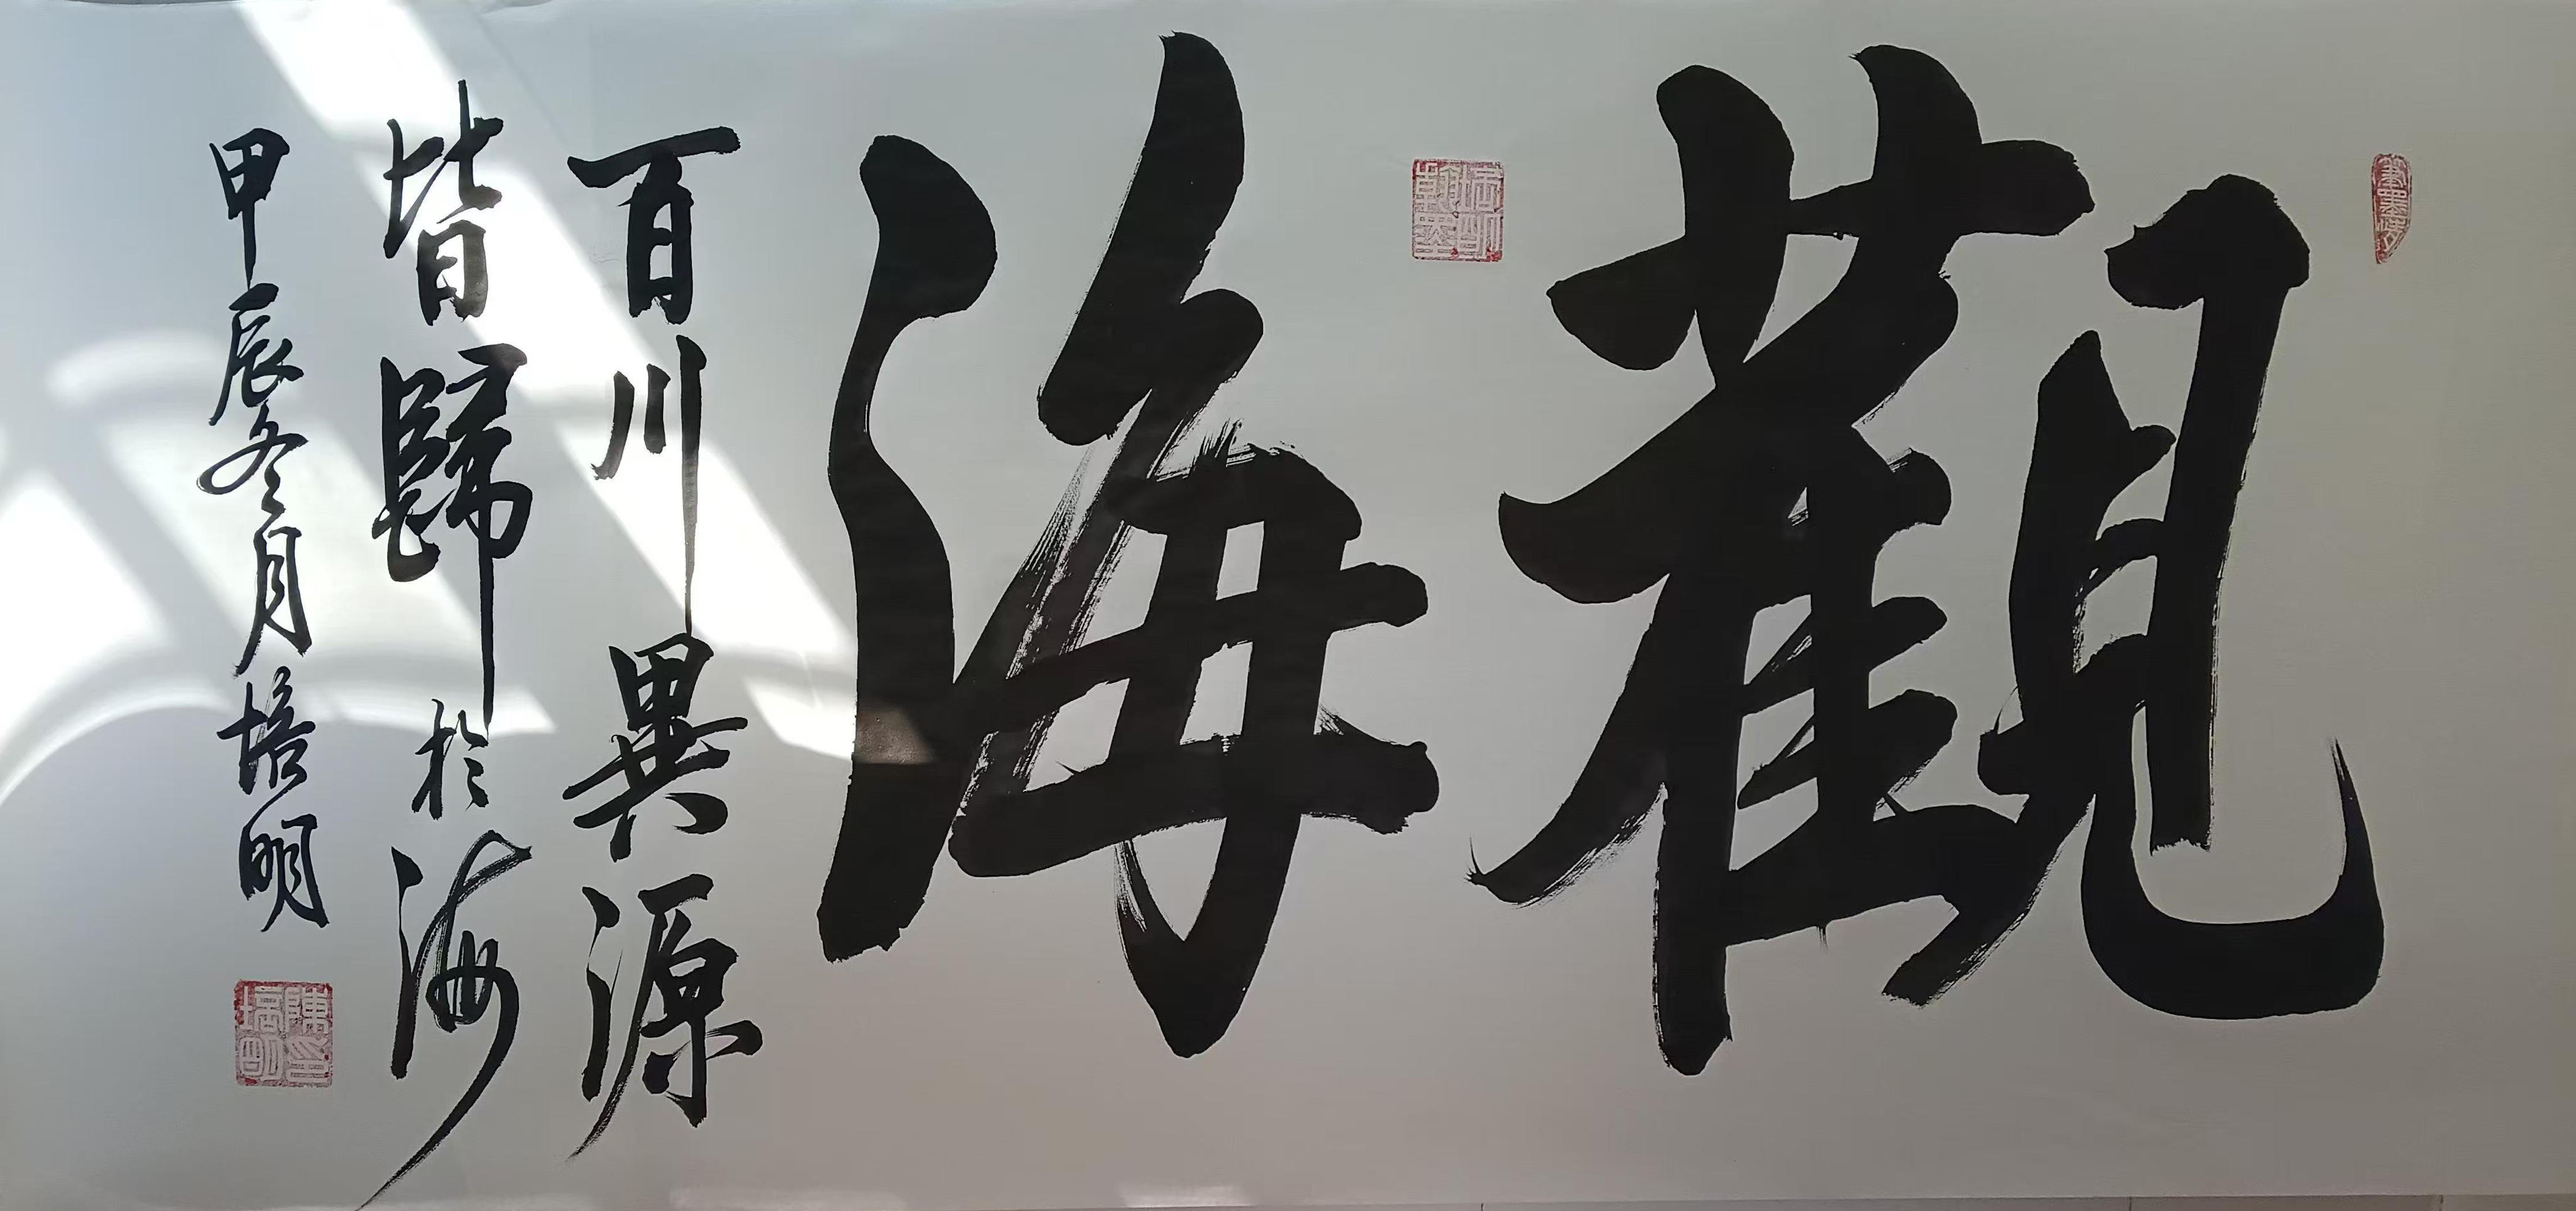 觀海
百川異源
皆歸於海
甲辰冬月培明
陳培明印